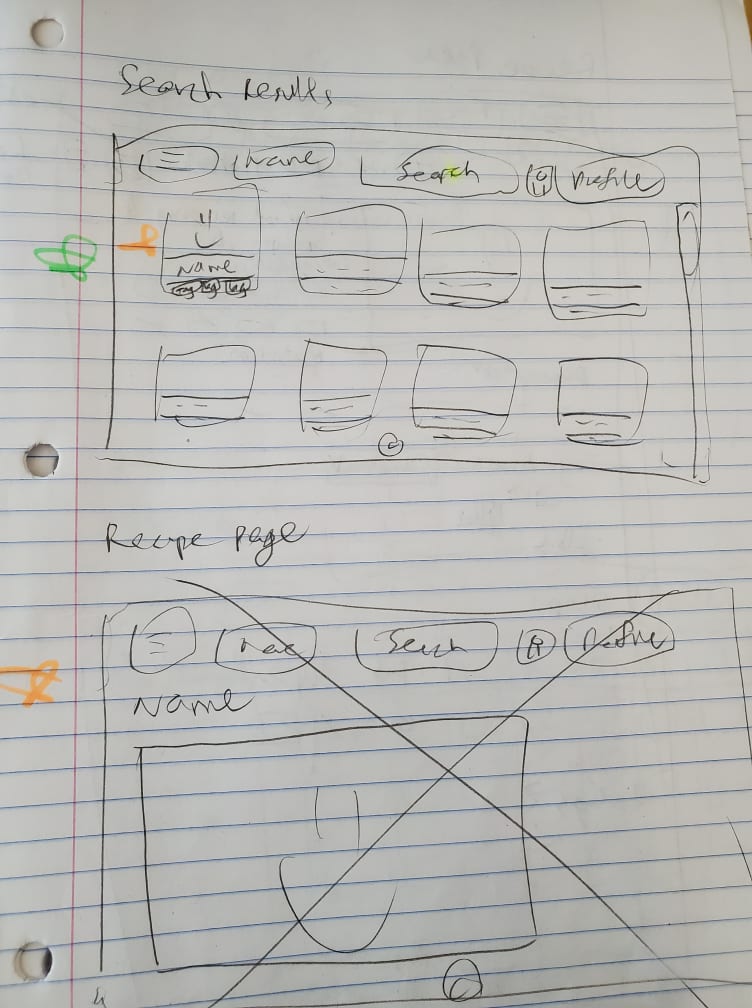 Search results
Name Search Profile
Name
tag tag tag
Recipe page
Search Profile
Name